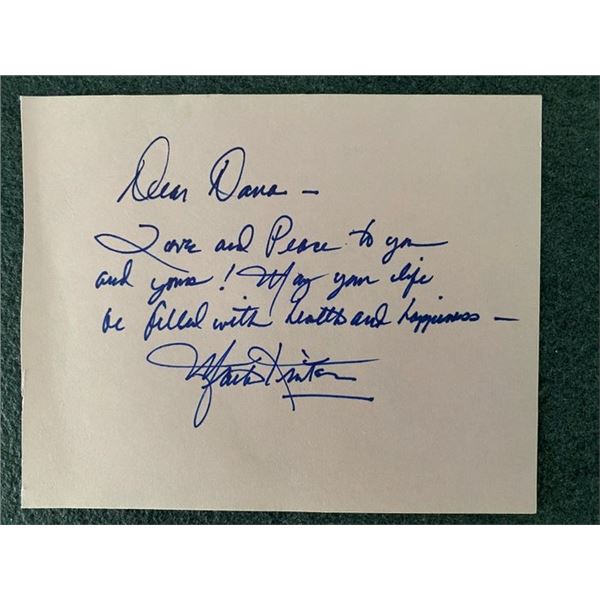 Dear Dana —
Love and Peace to you
and yours! May your life
be filled with health and happiness —